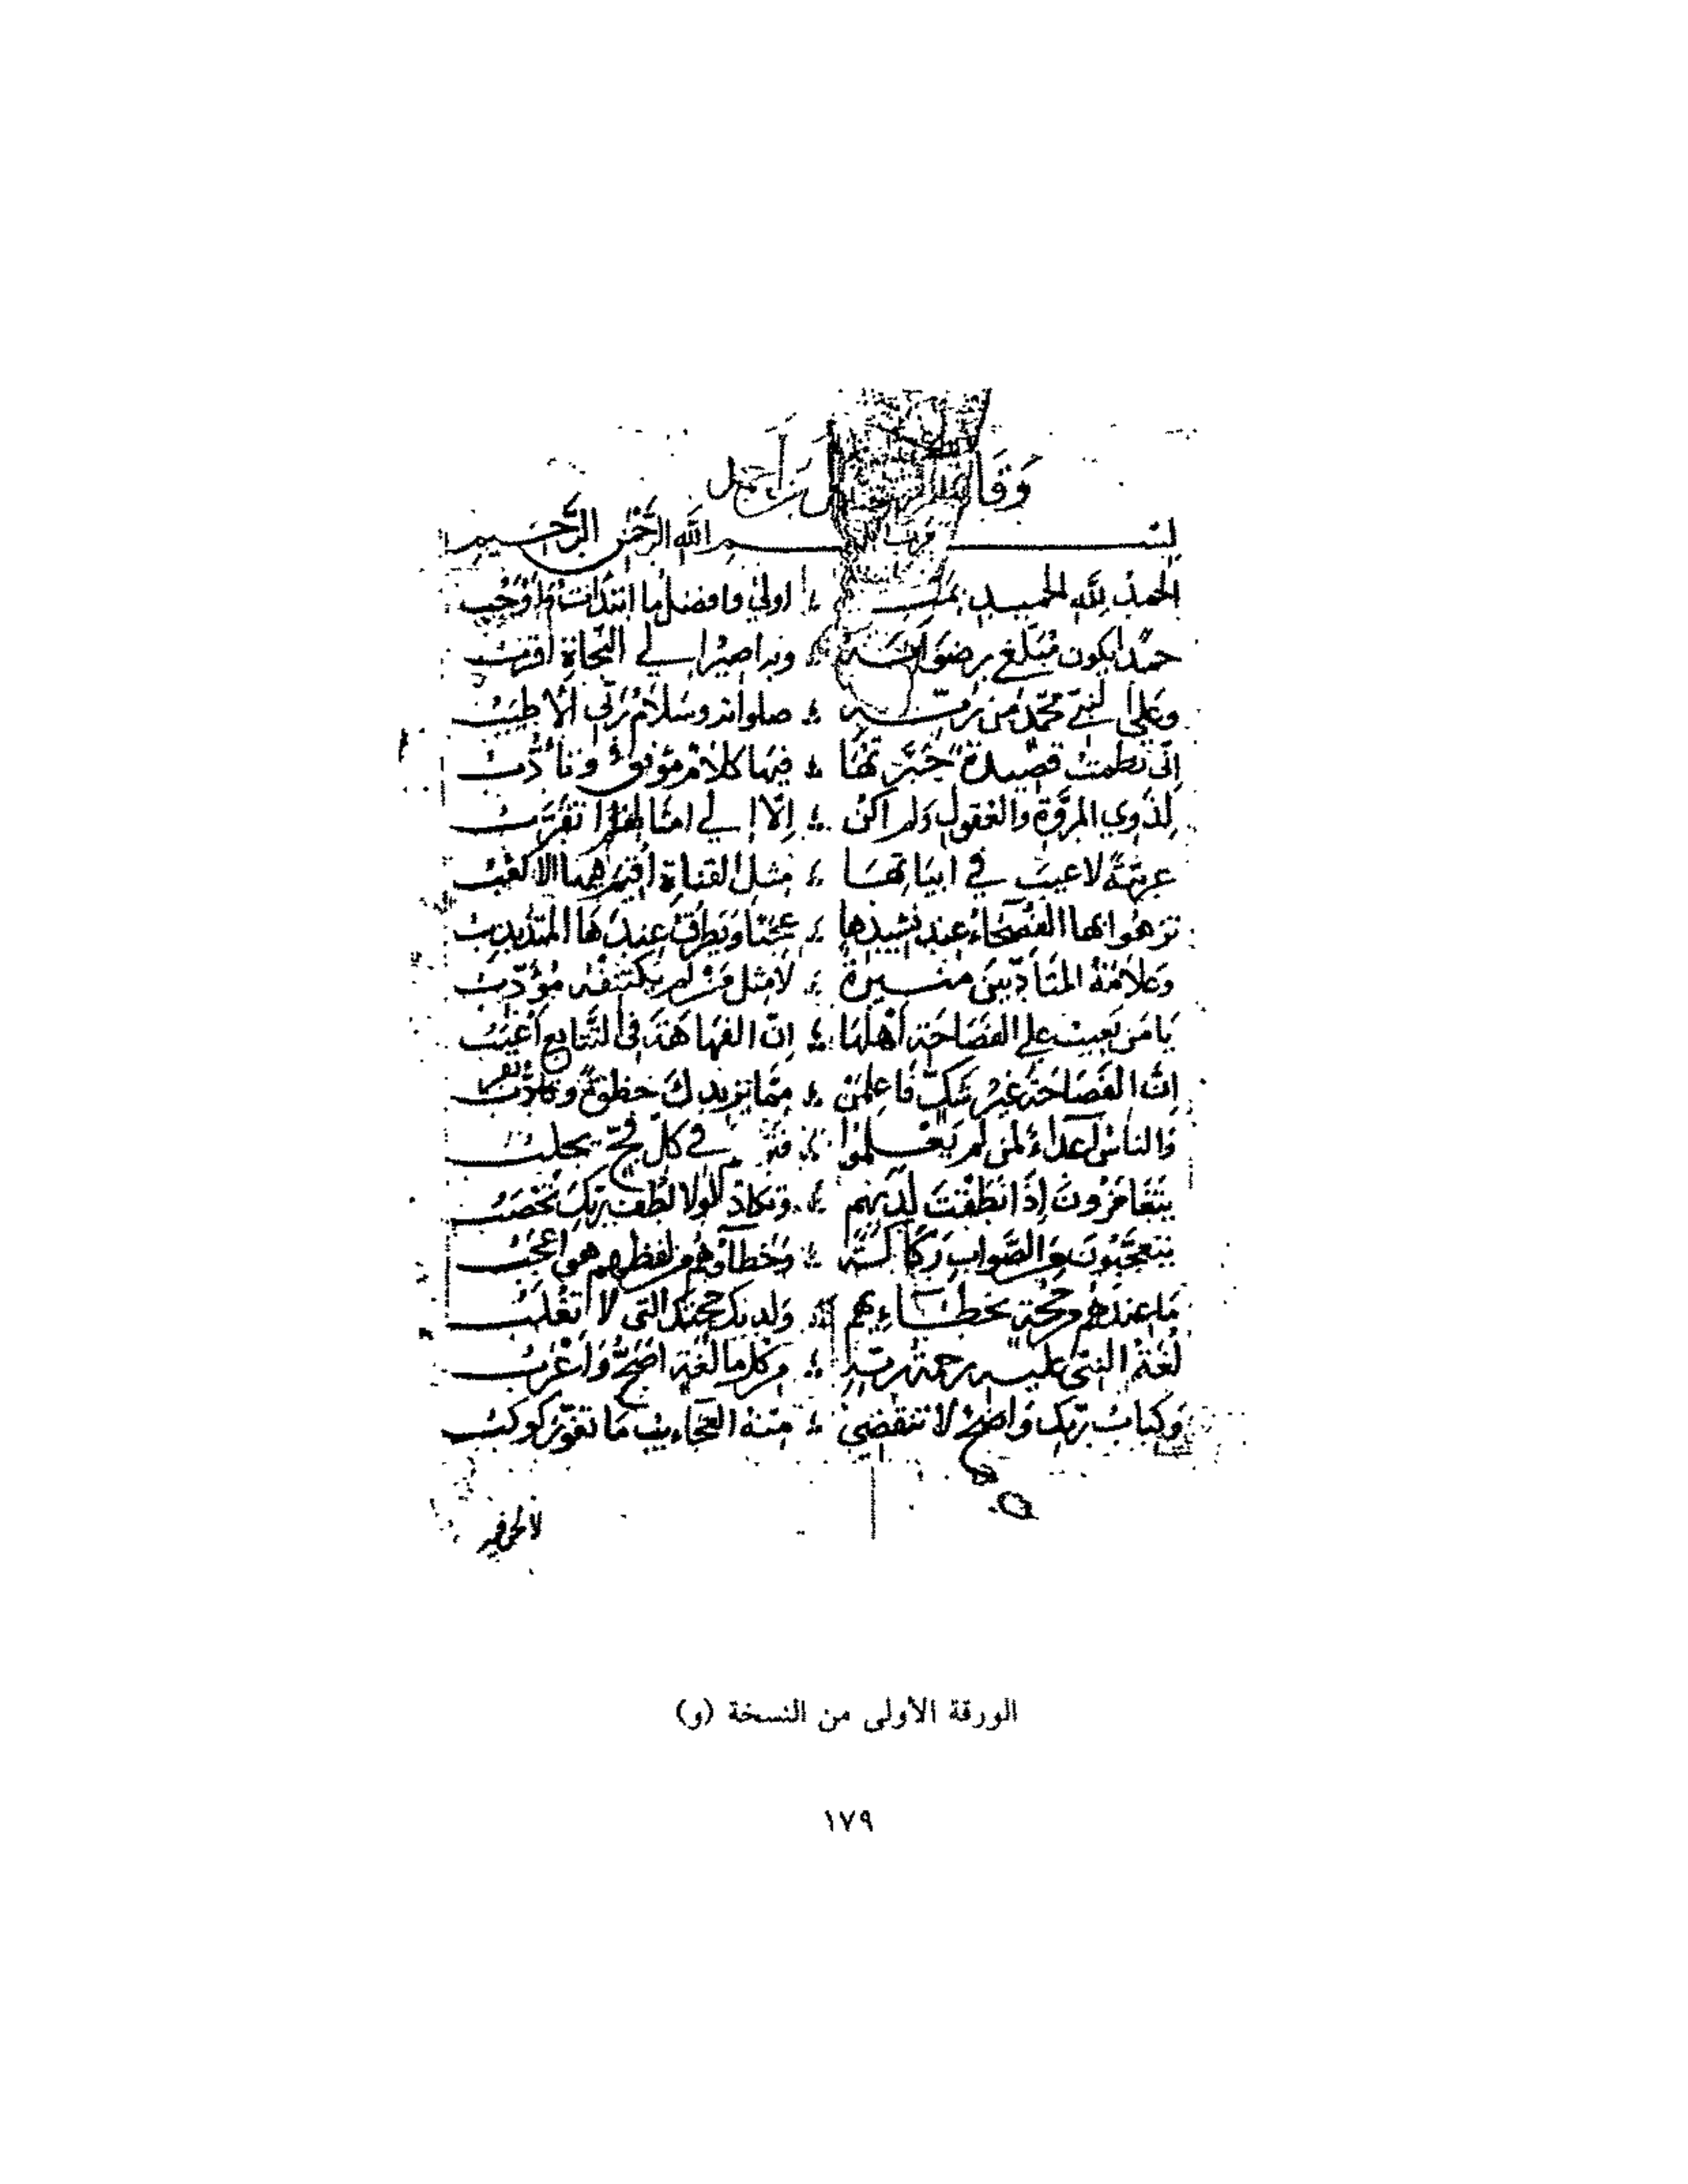 وقال بن أحمد
بسم الله الرحمن الرحيم
الحمد لله الحميد بمنه ؛ اولى وافضل ما ابتدأت واوجب
حمدا يكون مبلغي رضوانه ؛ وبه اصير الى النجاة اقرب
وعلى النبي محمد من ربه ؛ صلواته وسلام ربي الاطيب
إني نظمت قصيدة حبرتها ؛ فيها كلام مونق وتأدب
لذوي المروة والعقول ولم اكن ؛ إلا إلى امثالهم اتقرب
عربية لا عيب في ابياتها ؛ مثل القناة اقيم فيها الاكعب
تزهو بها الفصحاء عند نشيدها ؛ عجبا ويطرق عندها المتذبذب
وعلامة المتأدبين منيرة ؛ لا مثل من لم يكتنفه مؤدب
يا من يعيب على الفصاحة أهلها ؛ ان الفهاهة في التتابع أعيب
ان الفصاحة غير شك فاعلمن ؛ مما تزيدك حظوة وتقرب
والناس اعداء لمن لم يعلموا ؛ في كل فج يجلب
يتغامزون إذا نطقت لديهم ؛ وتكاد لولا لطف ربك تحصب
يتعجبون من الصواب ركاكة ؛ وخطاؤهم من لفظهم هو اعجب
ما عندهم من حجة بخطاءهم ؛ ولديك حجتك التي لا تغلب
لغة النبي عليه رحمة ربه ؛ من كل ما لغة اصح واعرب
وكتاب ربك واضح لا تنقضي ؛ منه العجايب ما تغور كوكب
لا لحن فيه
الورقة الأولى من النسخة (و)
١٧٩